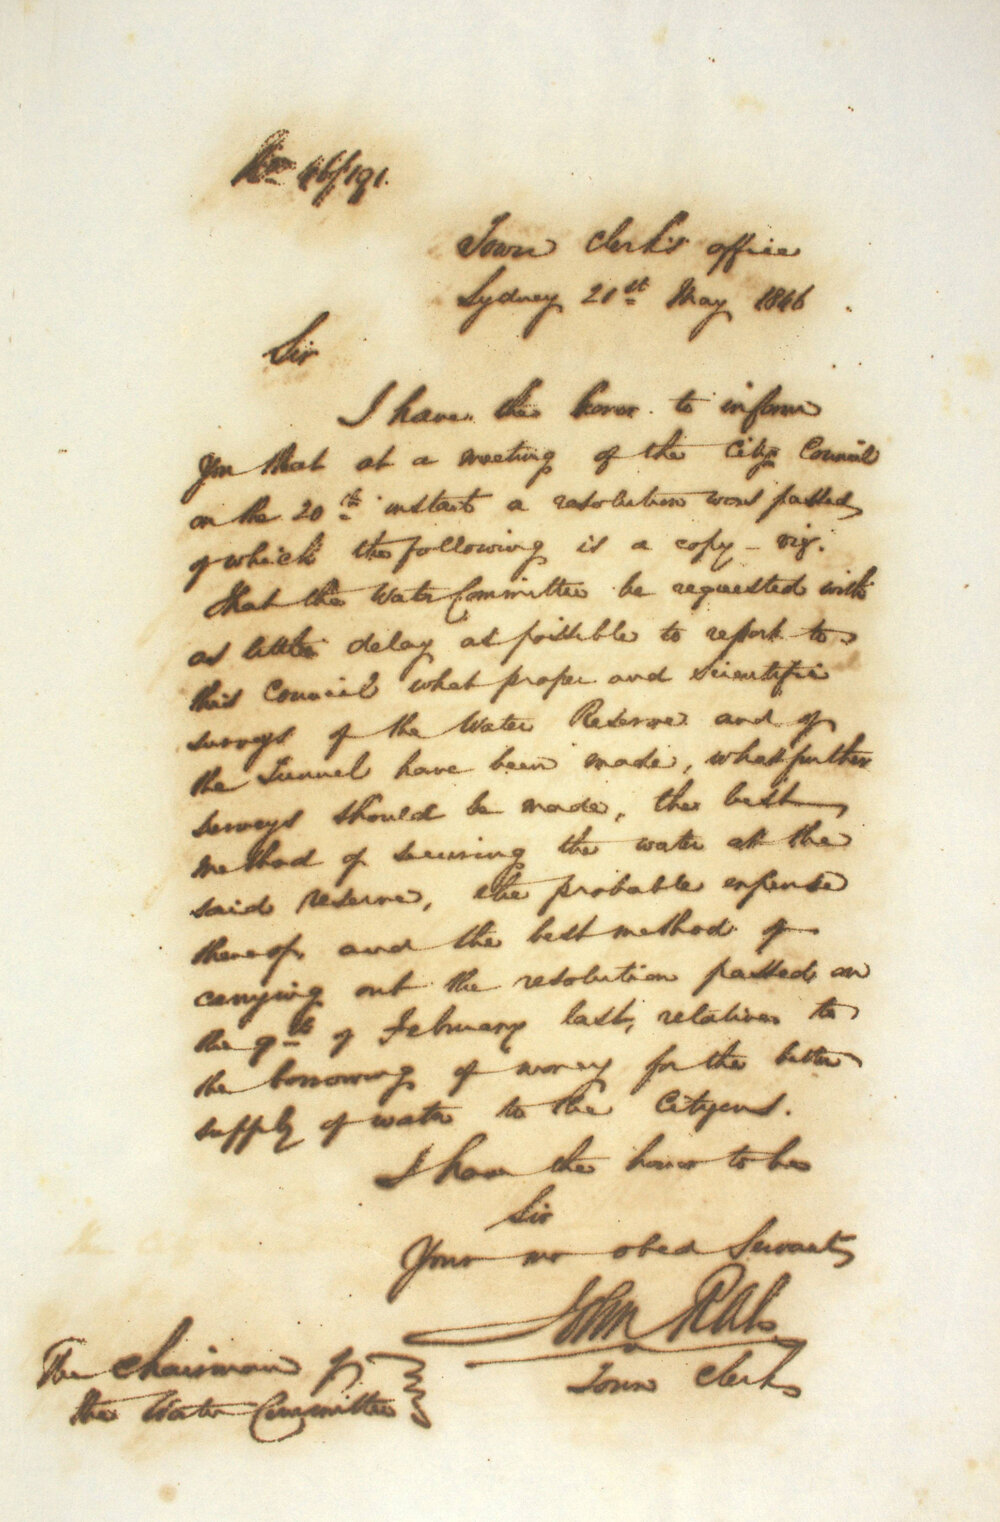 No 46/191.
Town Clerk's office
Sydney 21st May 1846
Sir
I have the honor to inform
you that at a meeting of the City Council
on the 20th instant a resolution was passed
of which the following is a copy – viz.
That the Water Committee be requested with
as little delay as possible to report to
this Council what proper and scientific
surveys of the Water Reserve and of
the Tunnel have been made, what further
surveys should be made, the best
method of securing the water at the
said reserve, the probable expense
thereof, and the best method of
carrying out the resolution passed on
the 9th of February last, relative to
the borrowing of money for the better
supply of water to the Citizens.
I have the honor to be
Sir
Your mo obed Servant
John
Town Clerk
The Chairman of
the Water Committee